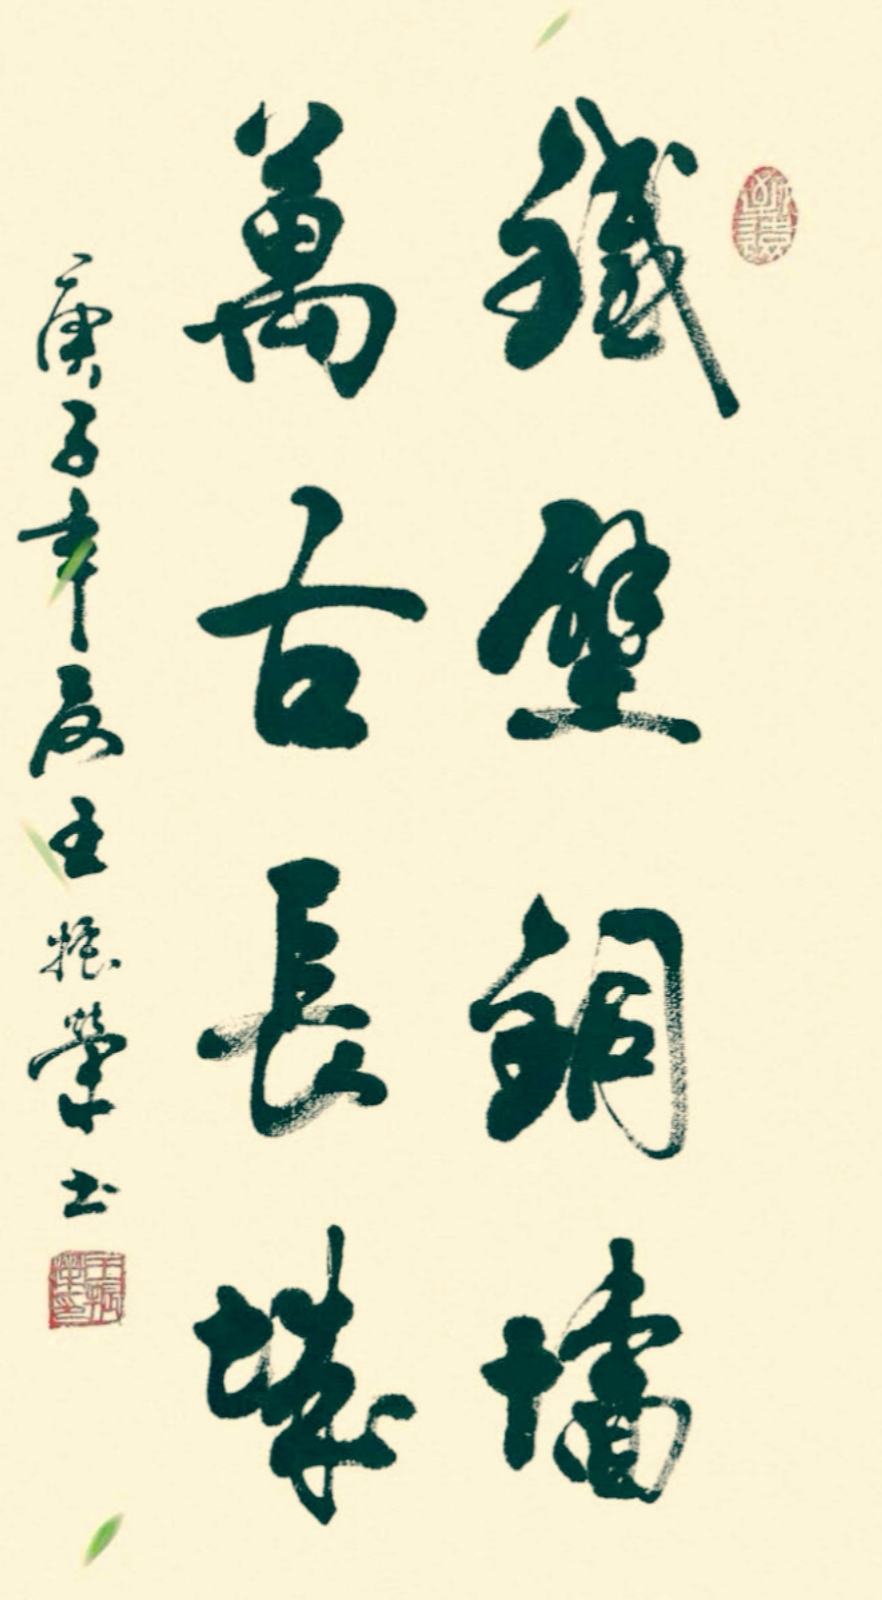 鐵壁銅墻
萬古長城
庚子年夏王振榮书